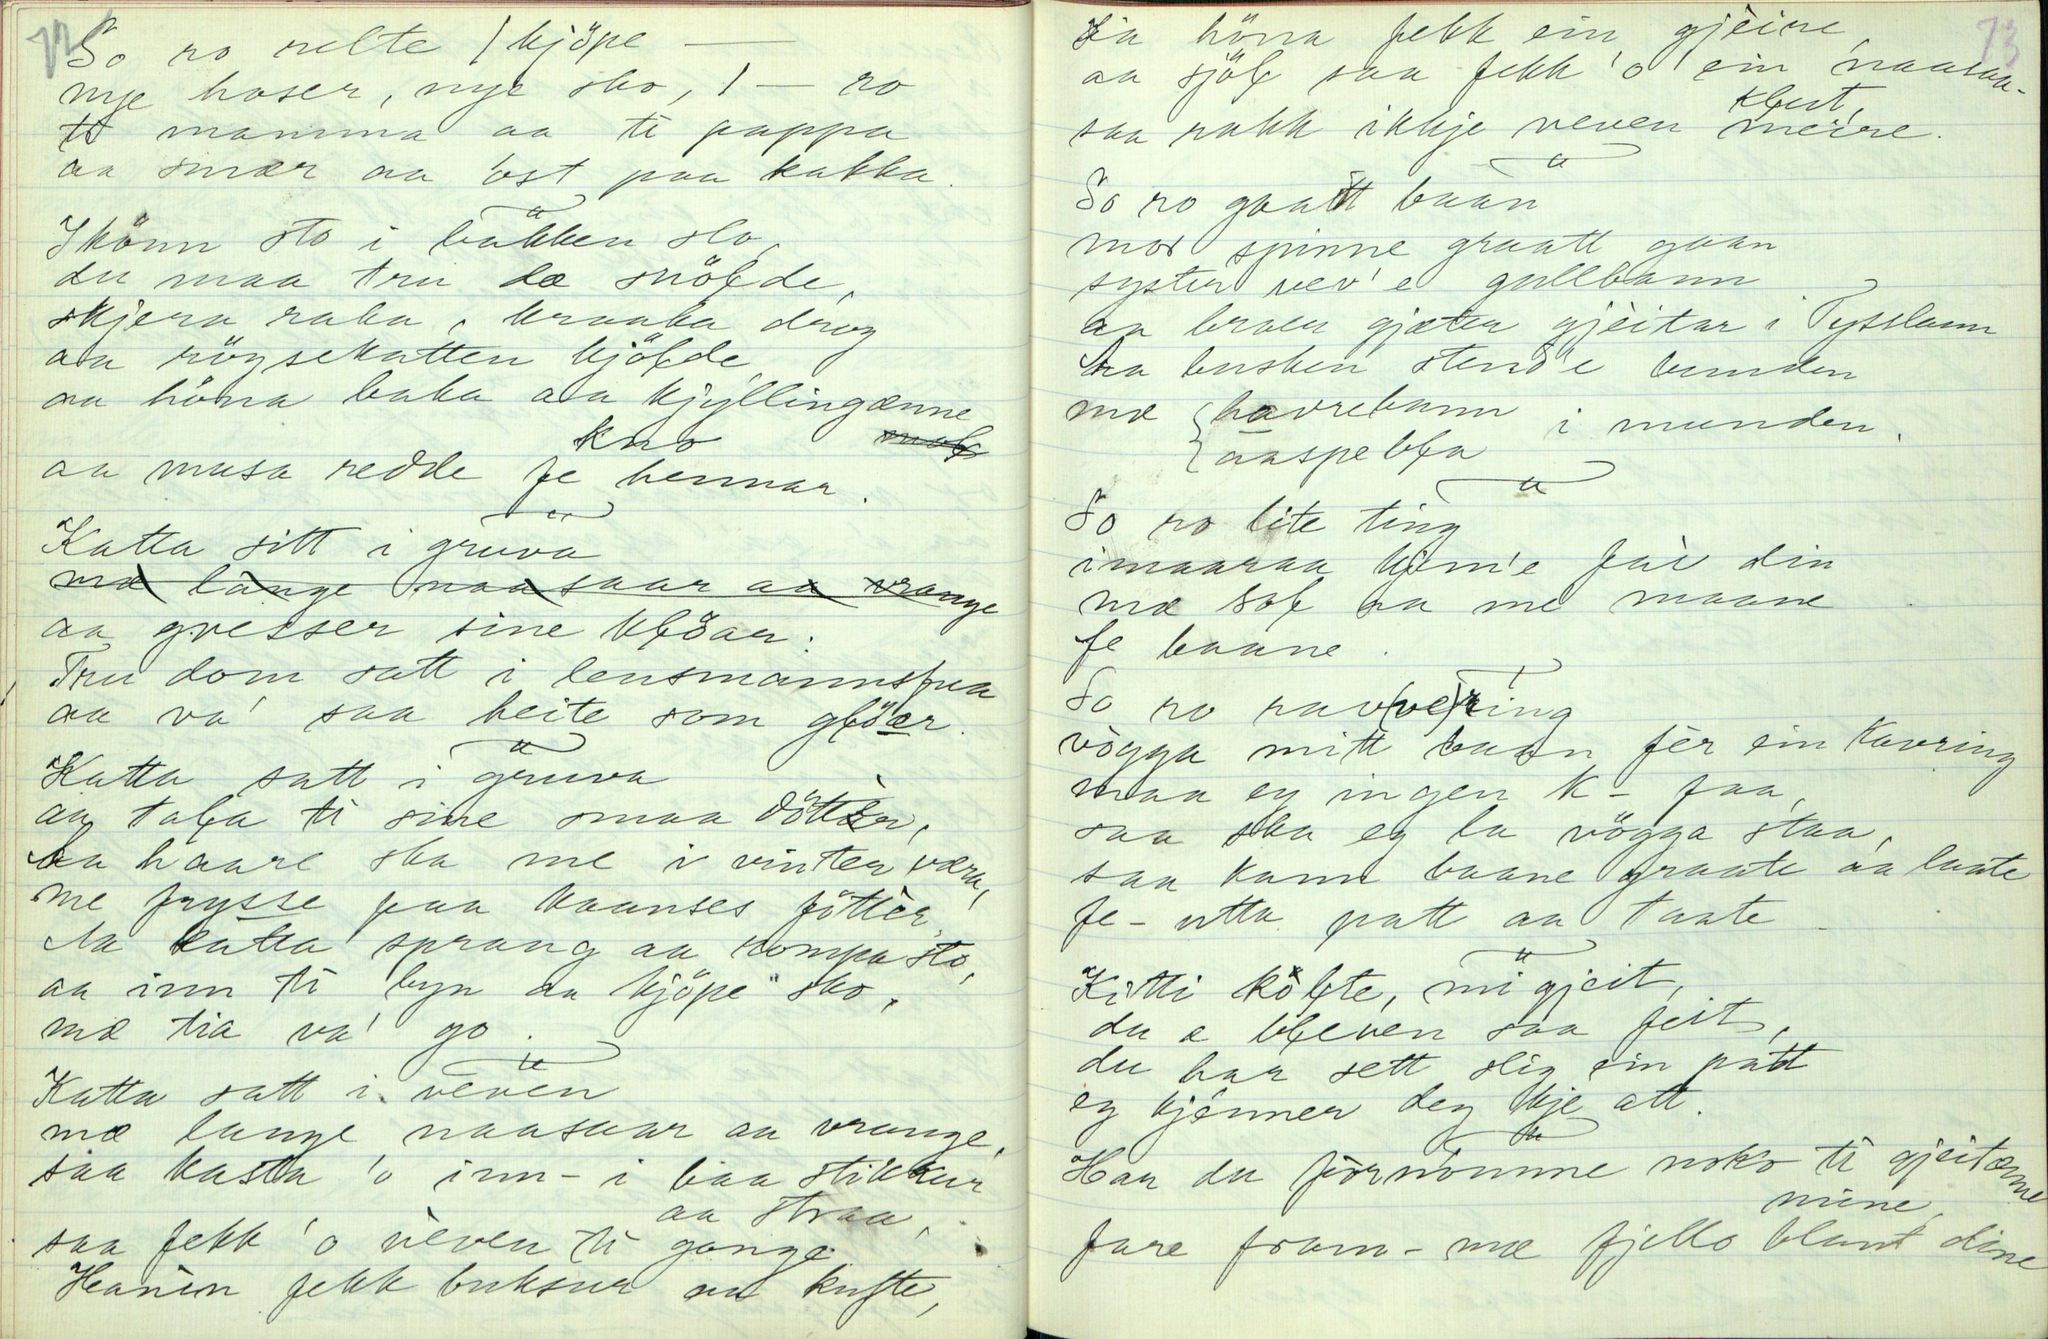 72
So ro relte / kjöpe —
nye hoser, nye sko, / — ro
ti mamma aa ti pappa
aa smær aa ost paa kakka.
I könn sto i bakken slo,
du maa tru dæ snölde,
skjera raka, kraaka drog
aa röysekatten kjölde
aa höna baka aa kjyllingænne
kno
aa musa redde fe hennar.
Katta sitt i gruva
mæ lange naasaar aa vrange
aa gvesser sine klöar.
Tru dom satt i lensmannsfua
aa va' saa heite som glöær.
Katta satt i gruva
aa tala ti sine smaa döttèr,
aa haare ska me i vinter væra,
me frysse paa kaanses föttèr.
Aa katta sprang aa rompa sto,
aa inn ti byn aa kjöpe sko,
mæ tia va' go.
Katta satt i veven
mæ lange naasaar aa vrange,
saa kasta 'o inn - i baa stikkur
aa straa,
saa fekk 'o veven ti gange
Hanèn fekk buksur aa kufte,
73
Hia höna fekk ein gjèire,
aa sjöl saa fekk 'o ein naasaa-
klut,
saa rakk ikkje veven meire.
So ro gaatt baan
mor spinne graatt gaan
syster vev'e gullbann
aa broer gjæter gjèitar i Tysslann
Aa busken stend'e bunden
mæ { havrebann i munden.
{ aaspelsla
So ro lite ting
imaaraa kjem'e far din
mæ sol aa me maane
fe baane.
So ro rav(ve)ring
vögga mitt baan fèr ein kavring
maa eg ingen k- faa,
saa ska eg la vögga staa,
saa kann baane graate aa laate
fe- utta patt aa taate
Kitti költe, mi gjeit,
du æ bleven saa feit,
du har sett slig ein patt
eg kjenner deg kje att.
Har du förnömme noko ti gjeitænne
mine,
fare fram - mæ fjello blant dine